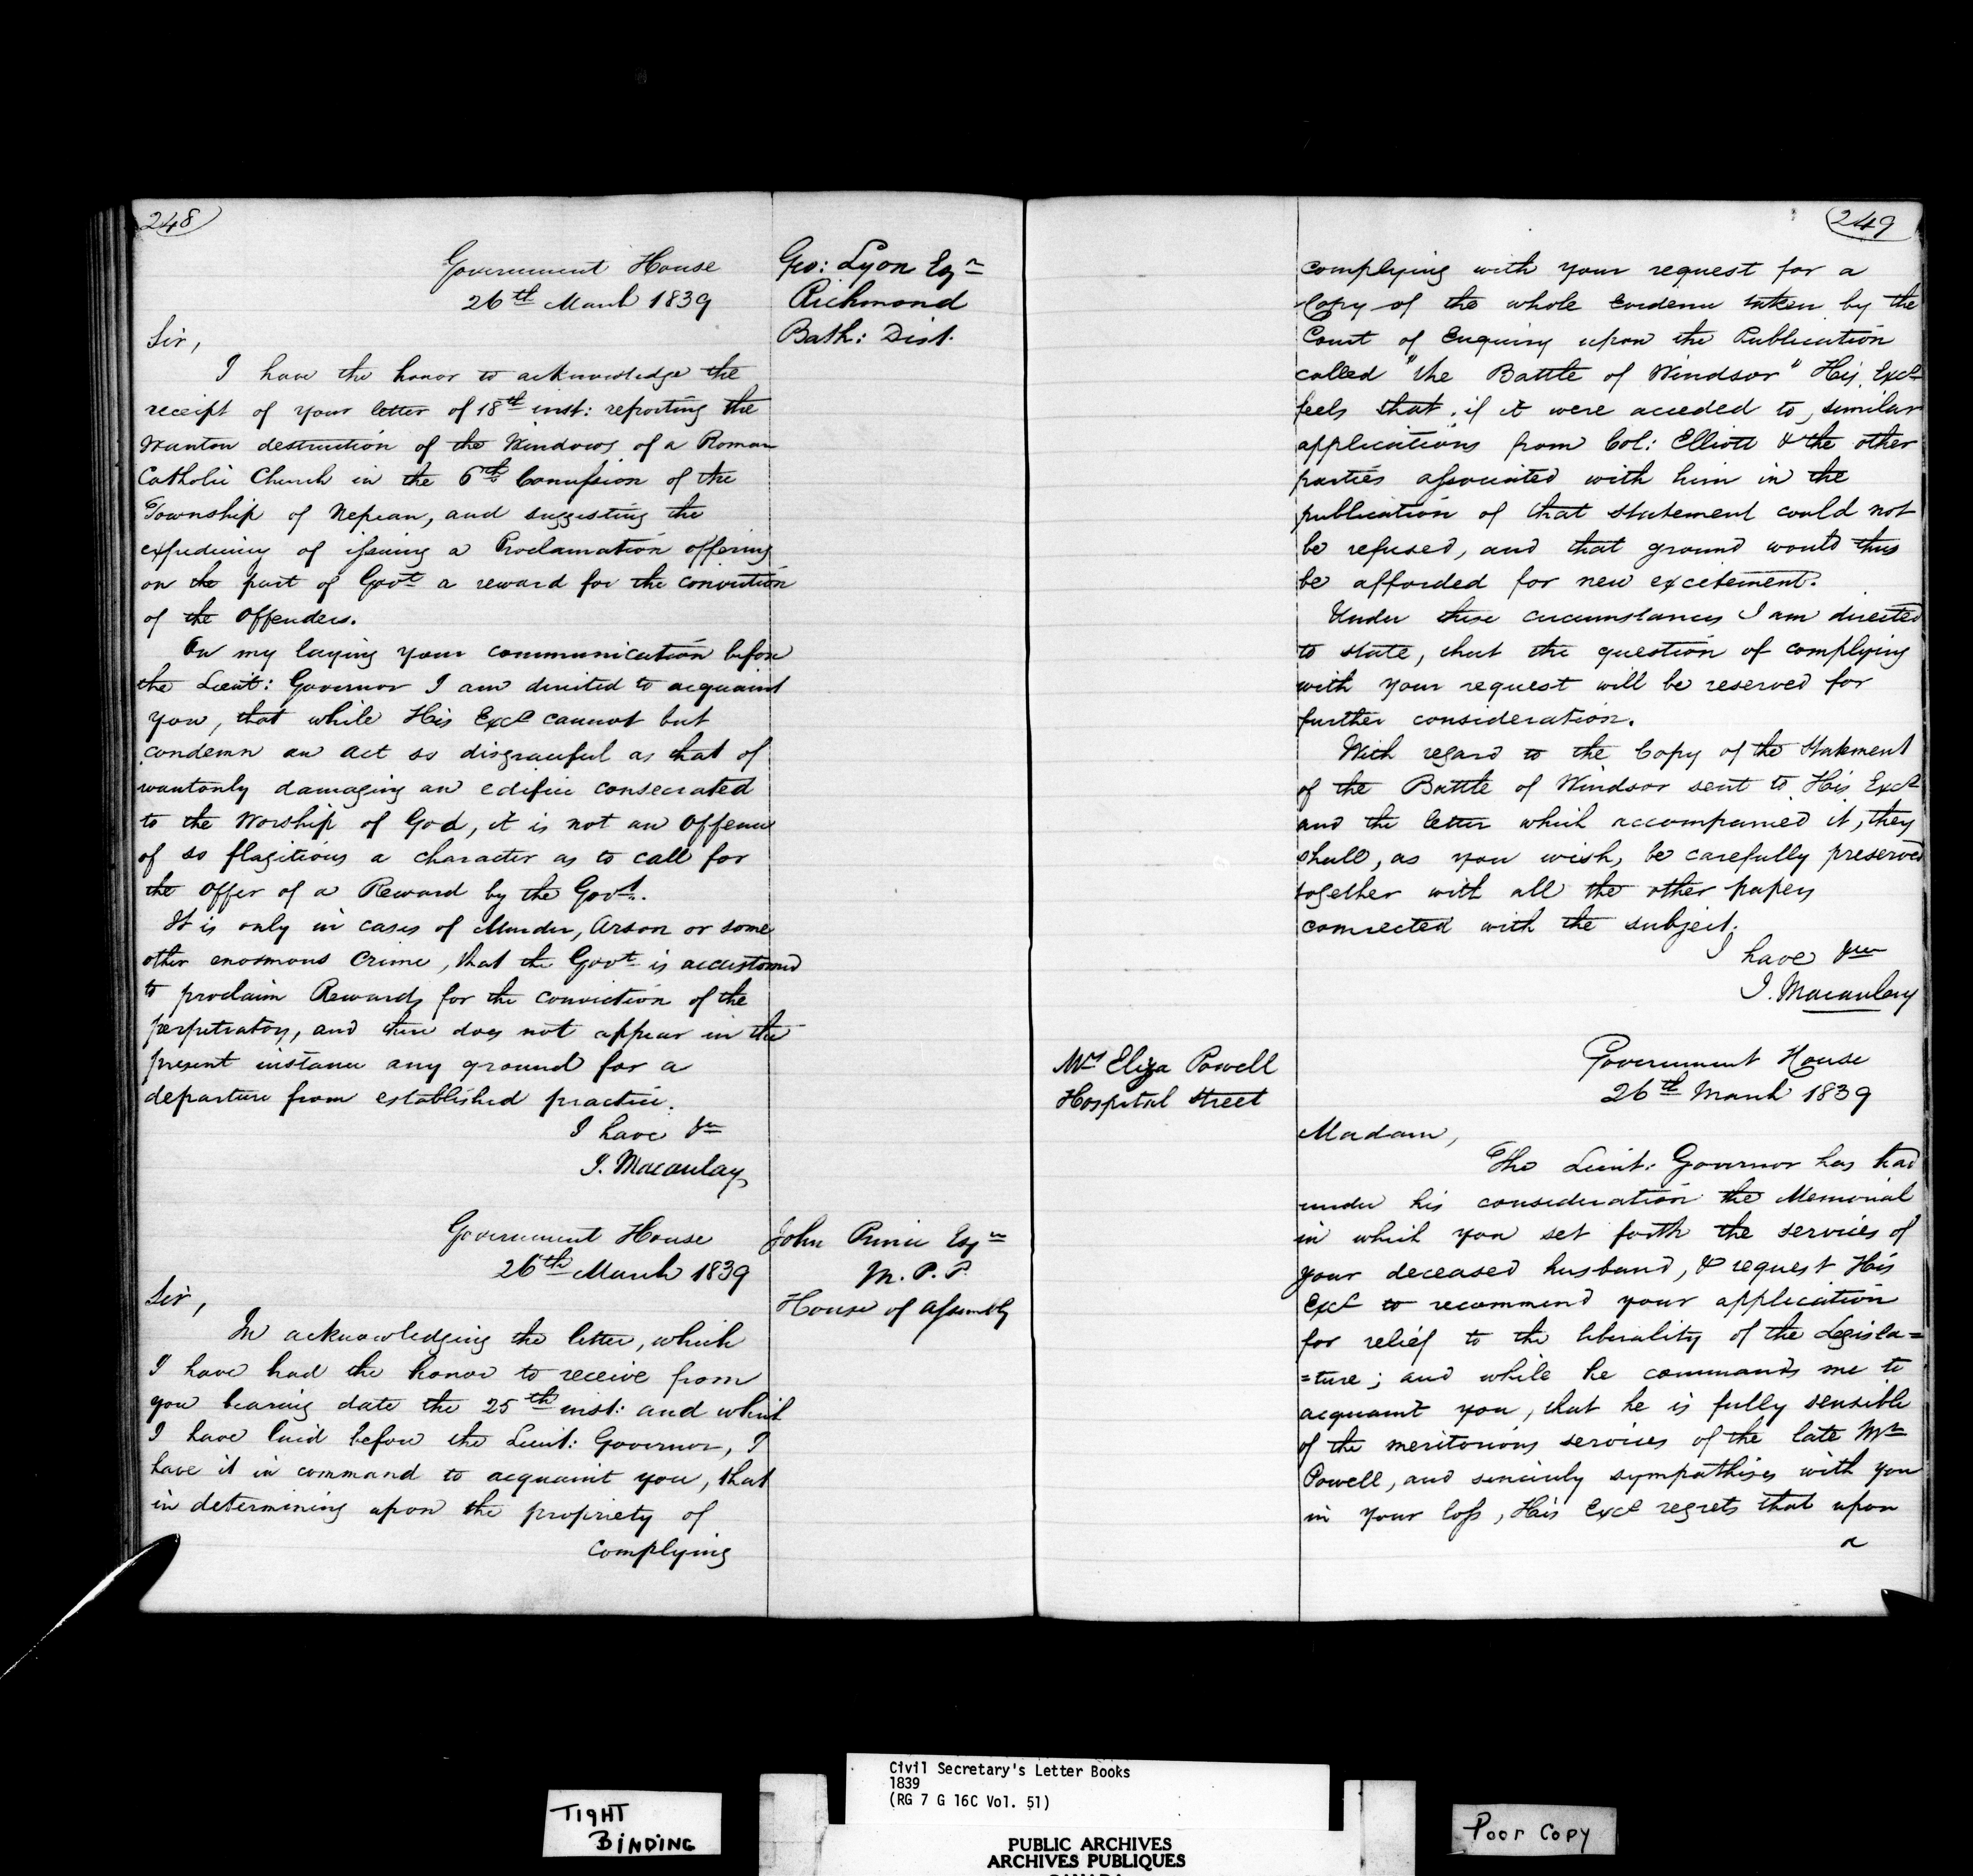 248
Government House
26th March 1839
Geo: Lyon Esqr
Richmond
Bath: Dist.
Sir,
I have the honor to acknowledge the
receipt of your letter of 18th inst: reporting the
wanton destruction of the Windows of a Roman
Catholic Church in the 6th Concession of the
Township of Nepean, and suggesting the
expediency of issuing a Proclamation offering
on the part of Govt a reward for the conviction
of the Offenders.
On my laying your communication before
the Lieut: Governor I am directed to acquaint
you, that while His Excy cannot but
condemn an act so disgraceful as that of
wantonly damaging an edifice consecrated
to the Worship of God, it is not an Offence
of so flagitious a character as to call for
the Offer of a Reward by the Govt.
It is only in cases of Murder, Arson or some
other enormous Crime, that the Govt is accustomed
to proclaim Rewards for the conviction of the
perpetrators, and there does not appear in the
present instance any ground for a
departure from established practice.
I have &c
J. Macaulay
Government House
26th March 1839
John Prince Esqre
M.P.P.
House of Assembly
Sir,
In acknowledging the letter, which
I have had the honor to receive from
you bearing date the 25th inst: and which
I have laid before the Lieut: Governor, I
have it in command to acquaint you, that
in determining upon the propriety of
complying
249
complying with your request for a
Copy of the whole Evidence taken by the
Court of Enquiry upon the Publication
called "the Battle of Windsor" His Excy
feels that, if it were acceded to, similar
applications from Col: Elliott & the other
parties associated with him in the
publication of that statement could not
be refused, and that ground would thus
be afforded for new excitement.
Under these circumstances I am directed
to state, that the question of complying
with your request will be reserved for
further consideration.
With regard to the Copy of the Statement
of the Battle of Windsor sent to His Excy
and the letter which accompanied it, they
shall, as you wish, be carefully preserved
together with all the other papers
connected with the subject.
I have &c
J. Macaulay
Mrs Eliza Powell
Hospital Street
Government House
26th March 1839
Madam,
The Lieut: Governor has had
under his consideration the Memorial
in which you set forth the services of
your deceased husband, & request His
Excy to recommend your application
for relief to the liberality of the Legisla=
=ture; and while he commands me to
acquaint you, that he is fully sensible
of the meritorious services of the late Mr
Powell, and sincerely sympathises with you
in your loss, His Excy regrets that upon
a
TIGHT
BINDING
Civil Secretary's Letter Books
1839
(RG 7 G 16C Vol. 51)
PUBLIC ARCHIVES
ARCHIVES PUBLIQUES
CANADA
Poor Copy